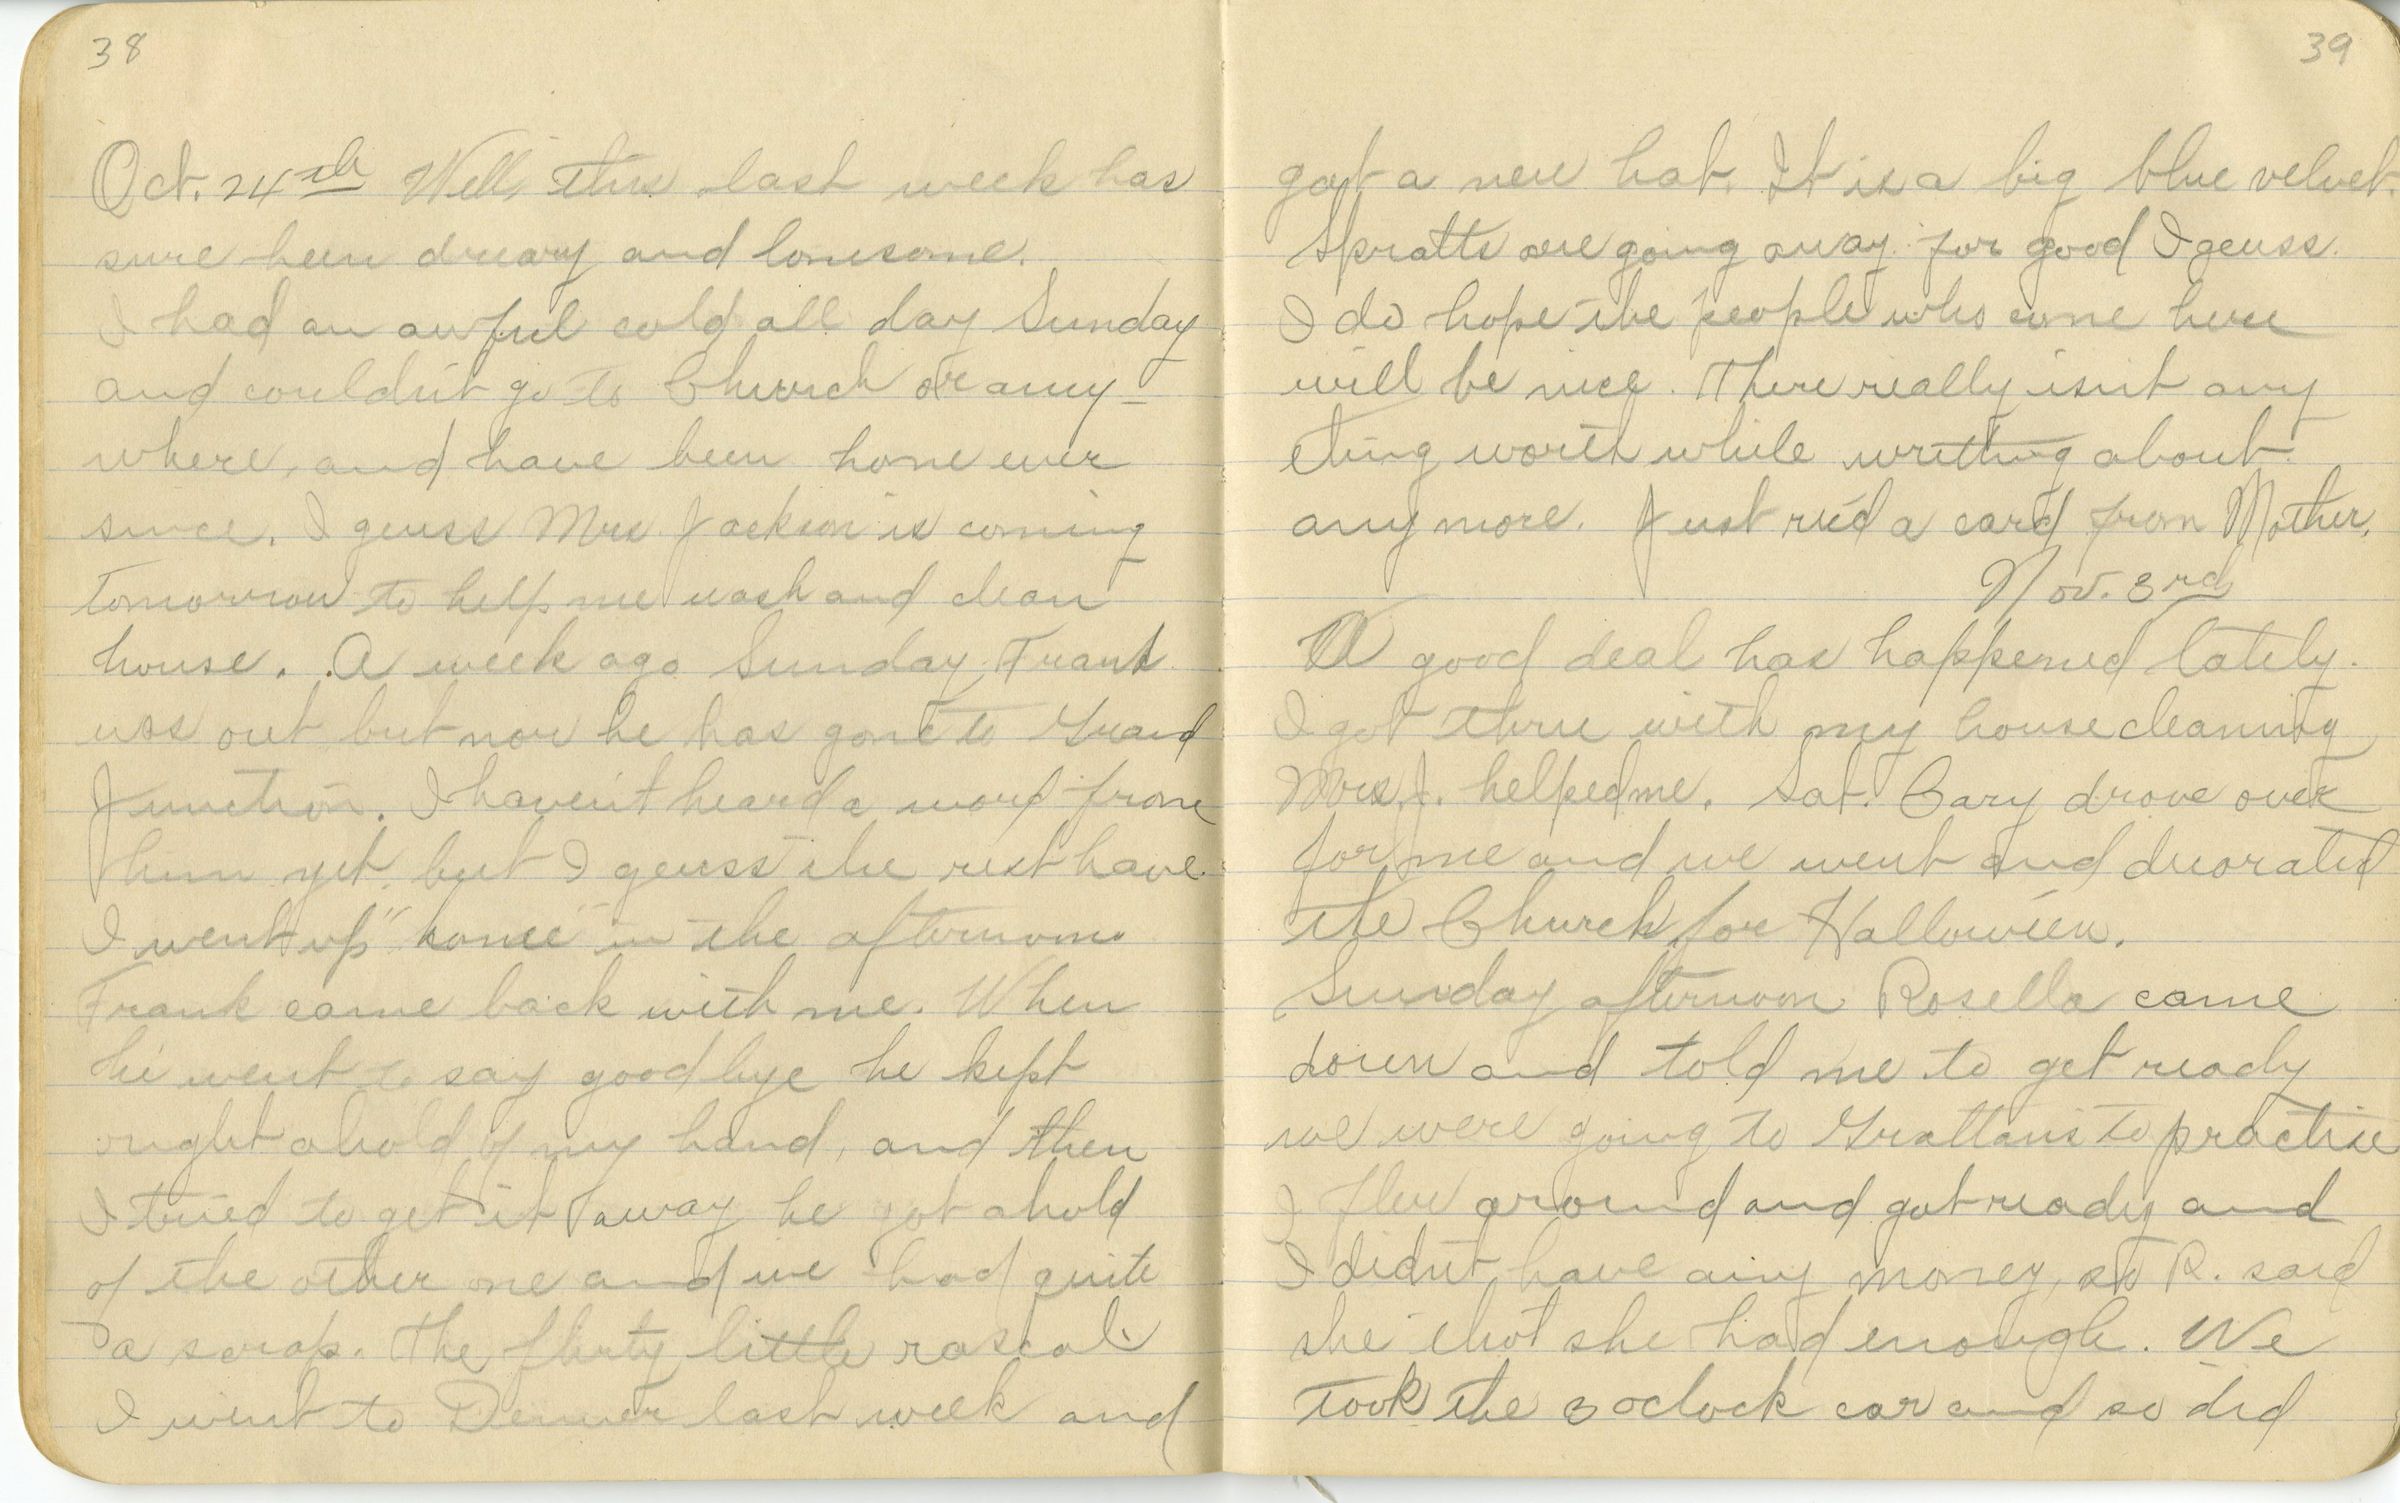 38
Oct. 24th Well, this last week has
sure been dreary and lonesome.
I had an awful cold all day Sunday
and couldn't go to Church or any-
where, and have been home ever
since. I geuss Mrs. Jackson is coming
tomorrow to help me wash and clean
house. A week ago Sunday Frank
was out but now he has gone to Grand
Junction. I haven't heard a word from
him yet, but I geuss the rest have.
I went up "home" in the afternoon.
Frank came back with me. When
he went to say goodbye he kept
right ahold of my hand, and then
I tried to get it away he got ahold
of the other one and we had quite
a scrap. The flirty little rascal.
I went to Denver last week and
39
got a new hat. It is a big blue velvet.
Spratts are going away for good I geuss.
I do hope the people who come here
will be nice. There really isn't any
thing worth while writting about
anymore. Just rec'd a card from Mother.
Nov. 3rd
A good deal has happened lately.
I got thru with my housecleaning
Mrs. J. helped me. Sat. Cary drove over
for me and we went and decorated
the Church for Hallowe'en.
Sunday afternoon Rosella came
down and told me to get ready
we were going to Grattan's to practise
I flew around and got ready and
I didn't have any money, so R. said
she thot she had enough. We
took the 3 oclock car and so did